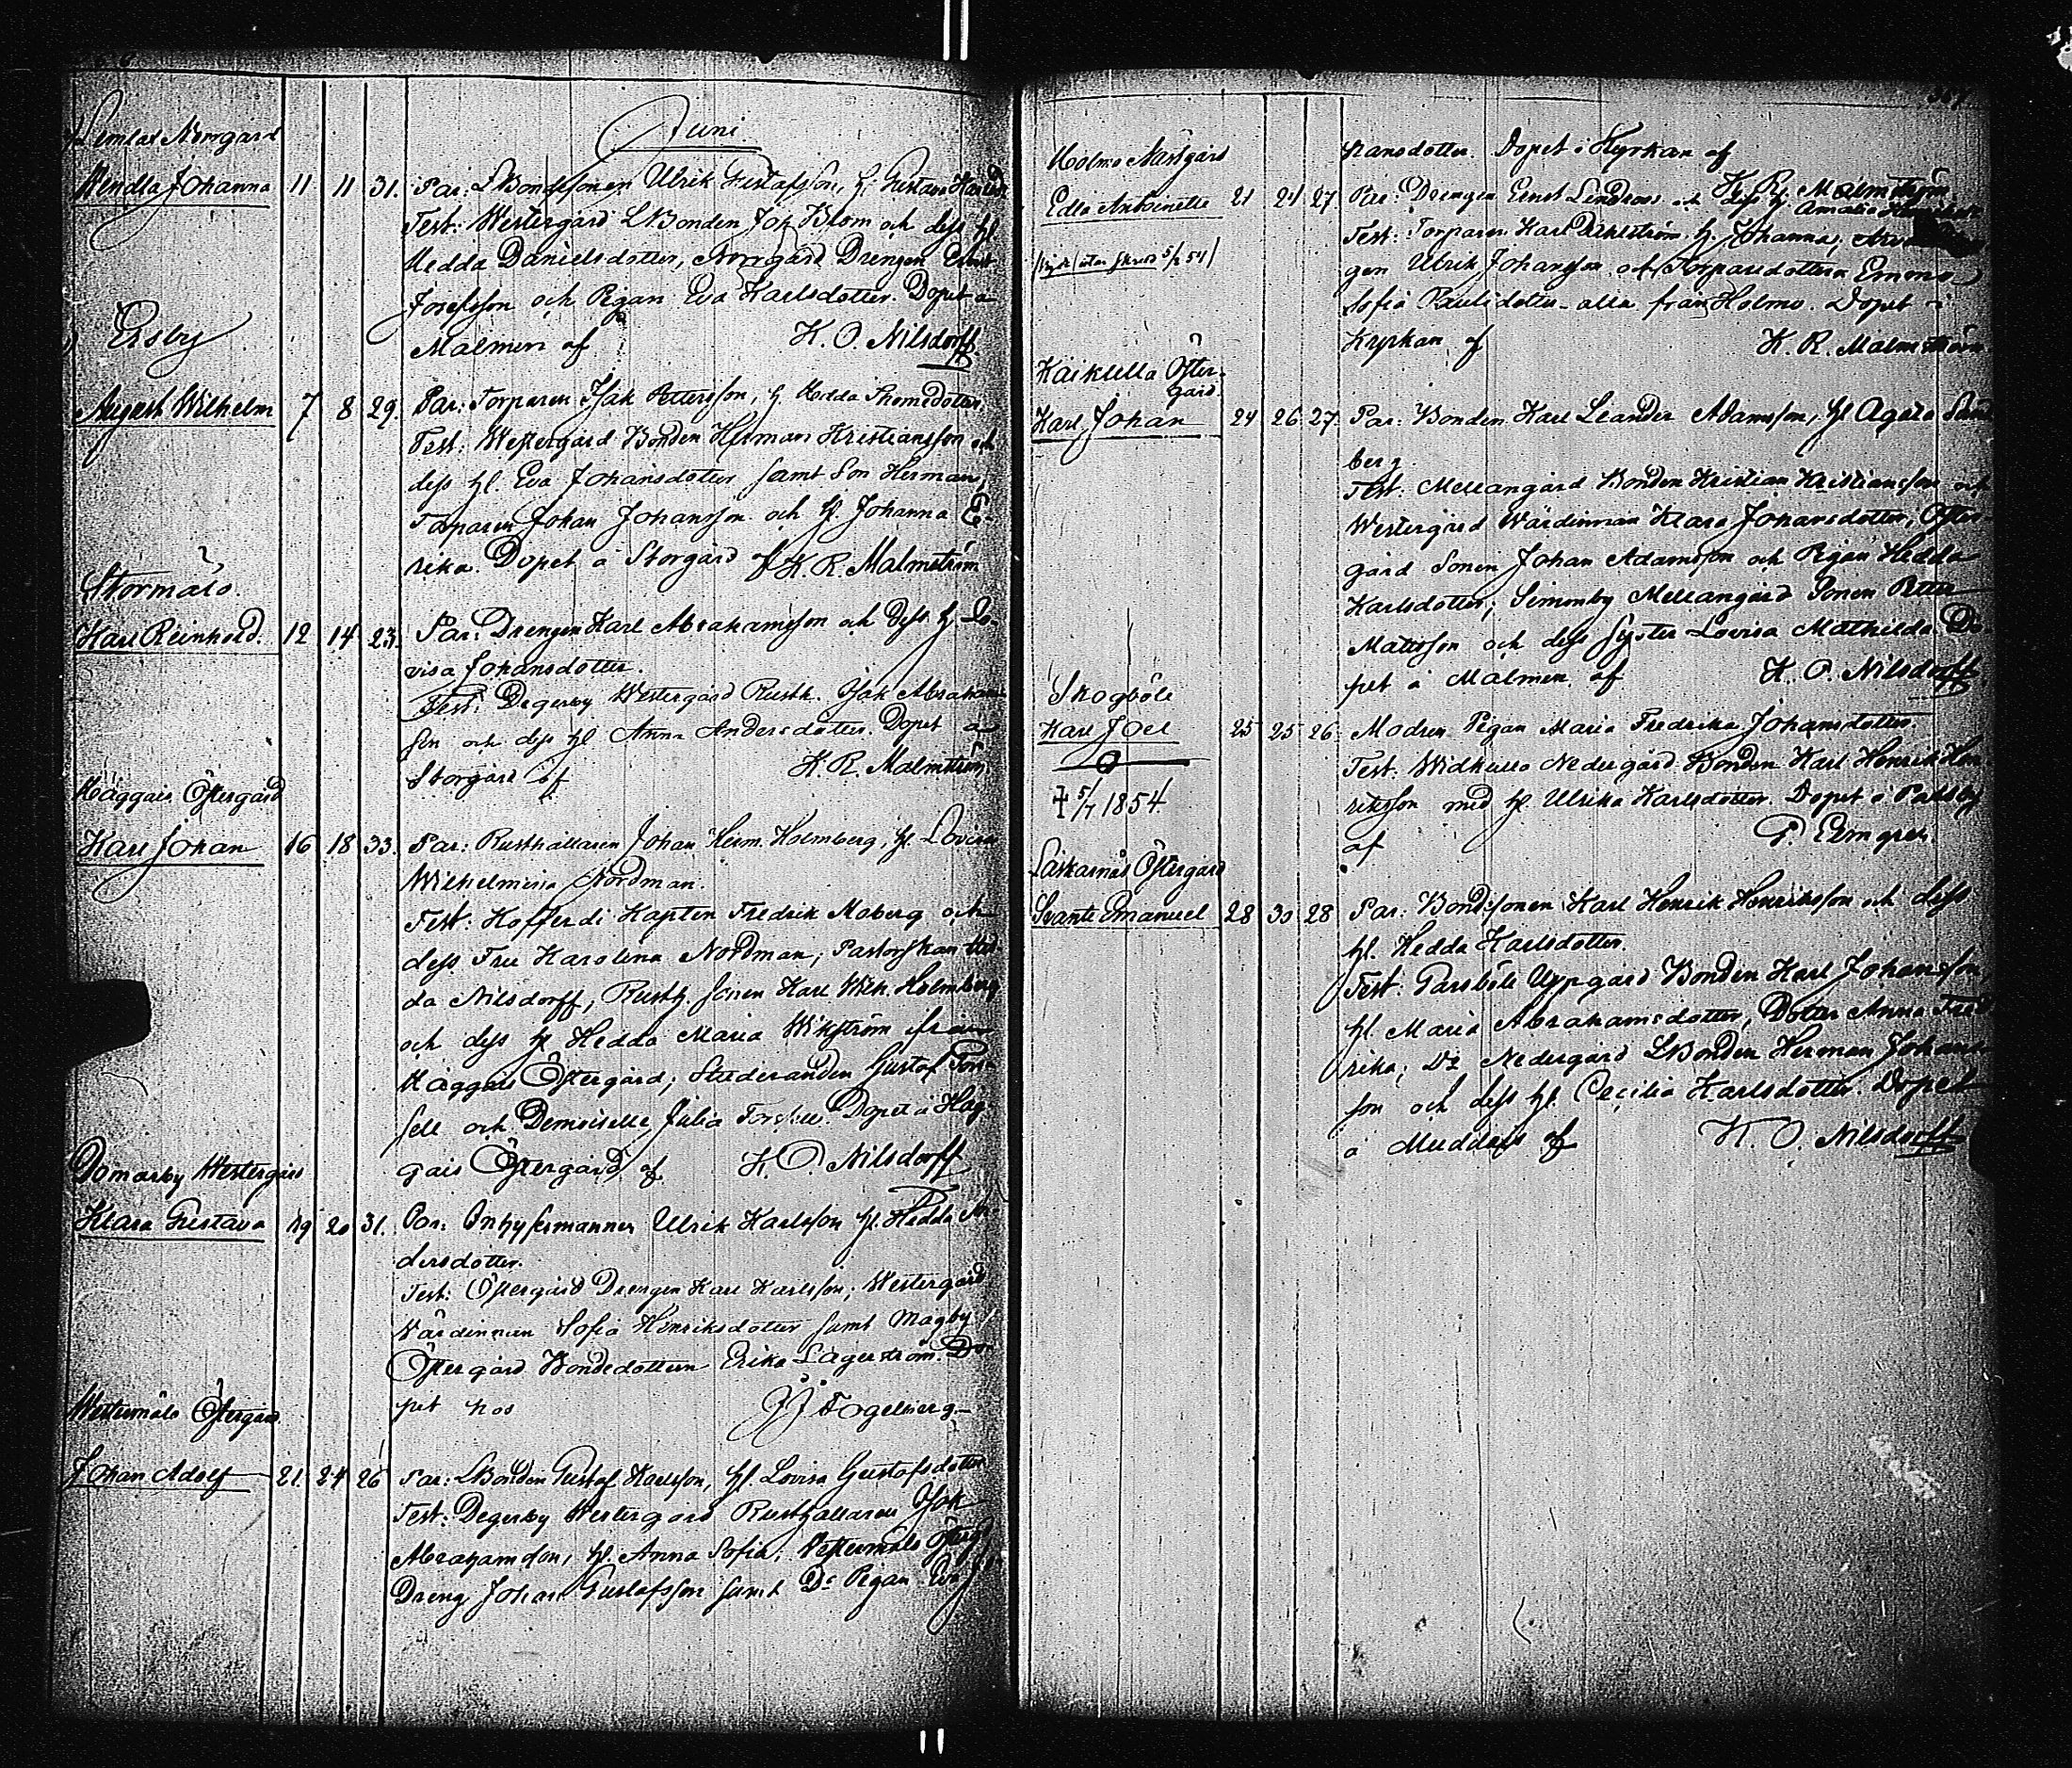 Juni
Norrgård
Wendla Johanna 11 11 31. Par: LBondesonen Ulrik Gustafsson, h. Gustava
Test: Westergård LBonden Joh Blom och dess hl
Hedda Danielsdotter, Norrgård Drengen
Josefsson och Pigan Eva Karlsdotter. Dopet å
Malmen af K. O. Nilsdorff
Ersby
August Wilhelm 7 8 29. Par: Torparen Isak Pettersson, h. Hedda Thomsdotter,
Test: Westergård Bonden Herman Kristiansson och
dess hl. Eva Johansdotter samt Son Herman,
Torparen Johan Johansson och hl. Johanna E-
rika. Dopet å Storgård af K. R. Malmström
Stormälö.
Karl Reinhold. 12 14 23. Par: Drengen Karl Abrahamsson och Dess h Lo-
visa Johansdotter.
Test: Degerby Westergård Rusth. Isak Abraham
sen och dess hl Anna Andersdotter. Dopet å
Storgård af K. R. Malmström
Häggais Östergård
Karl Johan 16 18 33. Par: Rusthållaren Johan Herm. Holmberg, hl. Lovisa
Wilhelmina Nordman.
Test: Kofferdi Kapten Fredrik Moberg och
dess Fru Karolina Nordman, Pastorskan Hed-
da Nilsdorff, Rusth. Sonen Karl Wilh. Holmberg
och dess hl Hedda Maria Wikström från
Häggais Östergård; Studeranden Gustaf Fors-
sell och Demoiselle Julia Forssell. Dopet å Häg
gais Östergård af K. O. Nilsdorff
Domarby Westergård
Klara Gustava 19 20 31. Par: Inhysesmannen Ulrik Karlsson hl. Hedda An
dersdotter.
Test: Östergård Drengen Karl Karlsson; Westergård
Värdinnan Sofia Henriksdotter samt Mågby
Östergård Bondedottern Erika Lagerström. Do-
pet hos JJ Fogelberg
Westermälö Östergård
Johan Adolf 21. 24 26 Par: LBonden Gustaf Karlsson, hl. Lovisa Gustafsdotter
Test: Degerby Westergård Rusthållaren Isak
Abrahamson, hl. Anna Sofia; Westermälö Österg
Dreng Johan Gustafsson samt Do Pigan Eva Jo
hansdotter. Dopet i Kyrkan af
K. R. Malmström
Holma Nästgård
Edla Antoinette 21 24 27 Par: Drengen Ernst Lindroos och dess h. Amalia
Test: Torparen Karl h Johanna,
gen Ulrik Johansson och Torparedottern Emma
Sofia Paulidotter alla från Holma. Dopet i
Kyrkan af K. R. Malmström
Kaikulla Öster-
gård
Karl Johan 24 26 27. Par: Bonden Karl Leander Adamsson, hl Agata Sund
berg.
Test: Mellangård Bonden Kristian Kristiansson och
Westergård Wärdinnan Klara Johansdotter, Öster
gård Sonen Johan Adamsson och Pigan Hedda
Karlsdotter; Simmby Mellangård Sonen Petter
Matsson och dess Syster Lovisa Mathilda. Do
pet å Malmen af K. O. Nilsdorff
Skogböle
Karl Joel 25 25 26 Modren Pigan Maria Fredrika Johansdotter.
Test. Widkulla Nedergård Bonden Karl Henrik Hen
riksson med hl. Ulrika Karlsdotter. Dopet i Pålsby
af P. Elmgren.
† 5/7 1854.
Laskarnäs Östergård
Svante Emanuel 28 30 28 Par: Bondesonen Karl Henrik Henriksson och dess
hl. Hedda Karlsdotter.
Test: Parsböle Uppgård Bonden Karl Johansson
hl. Maria Abrahamsdotter, Dotter Anna Fred
rika; Do Nedergård LBonden Herman Johans
son och dess hl. Cecilia Karlsdotter. Dopet
å Muddais af K. O. Nilsdorff